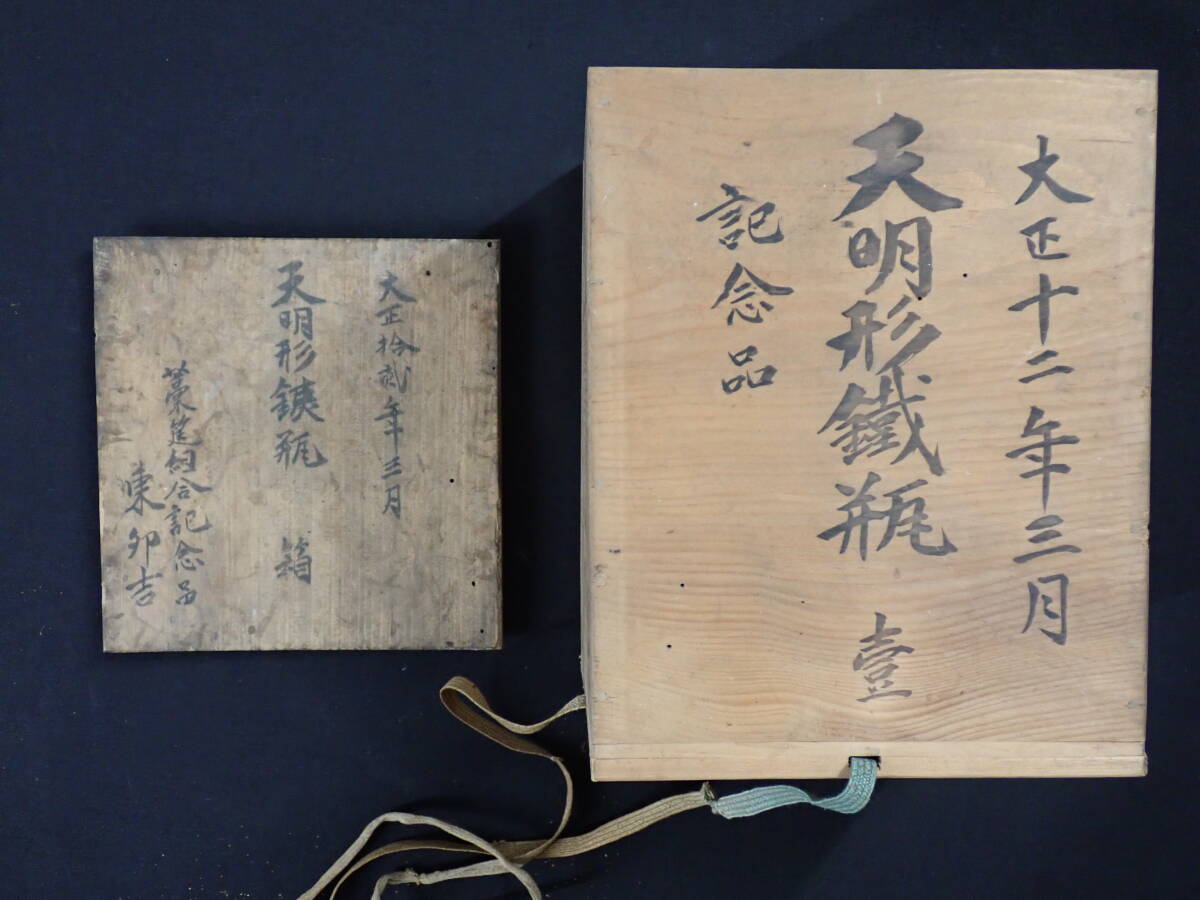 大正拾弐年三月
天明形鉄瓶 箱
藁莚組合記念品
東卯吉
大正十二年三月
天明形鐵瓶 壹
記念品